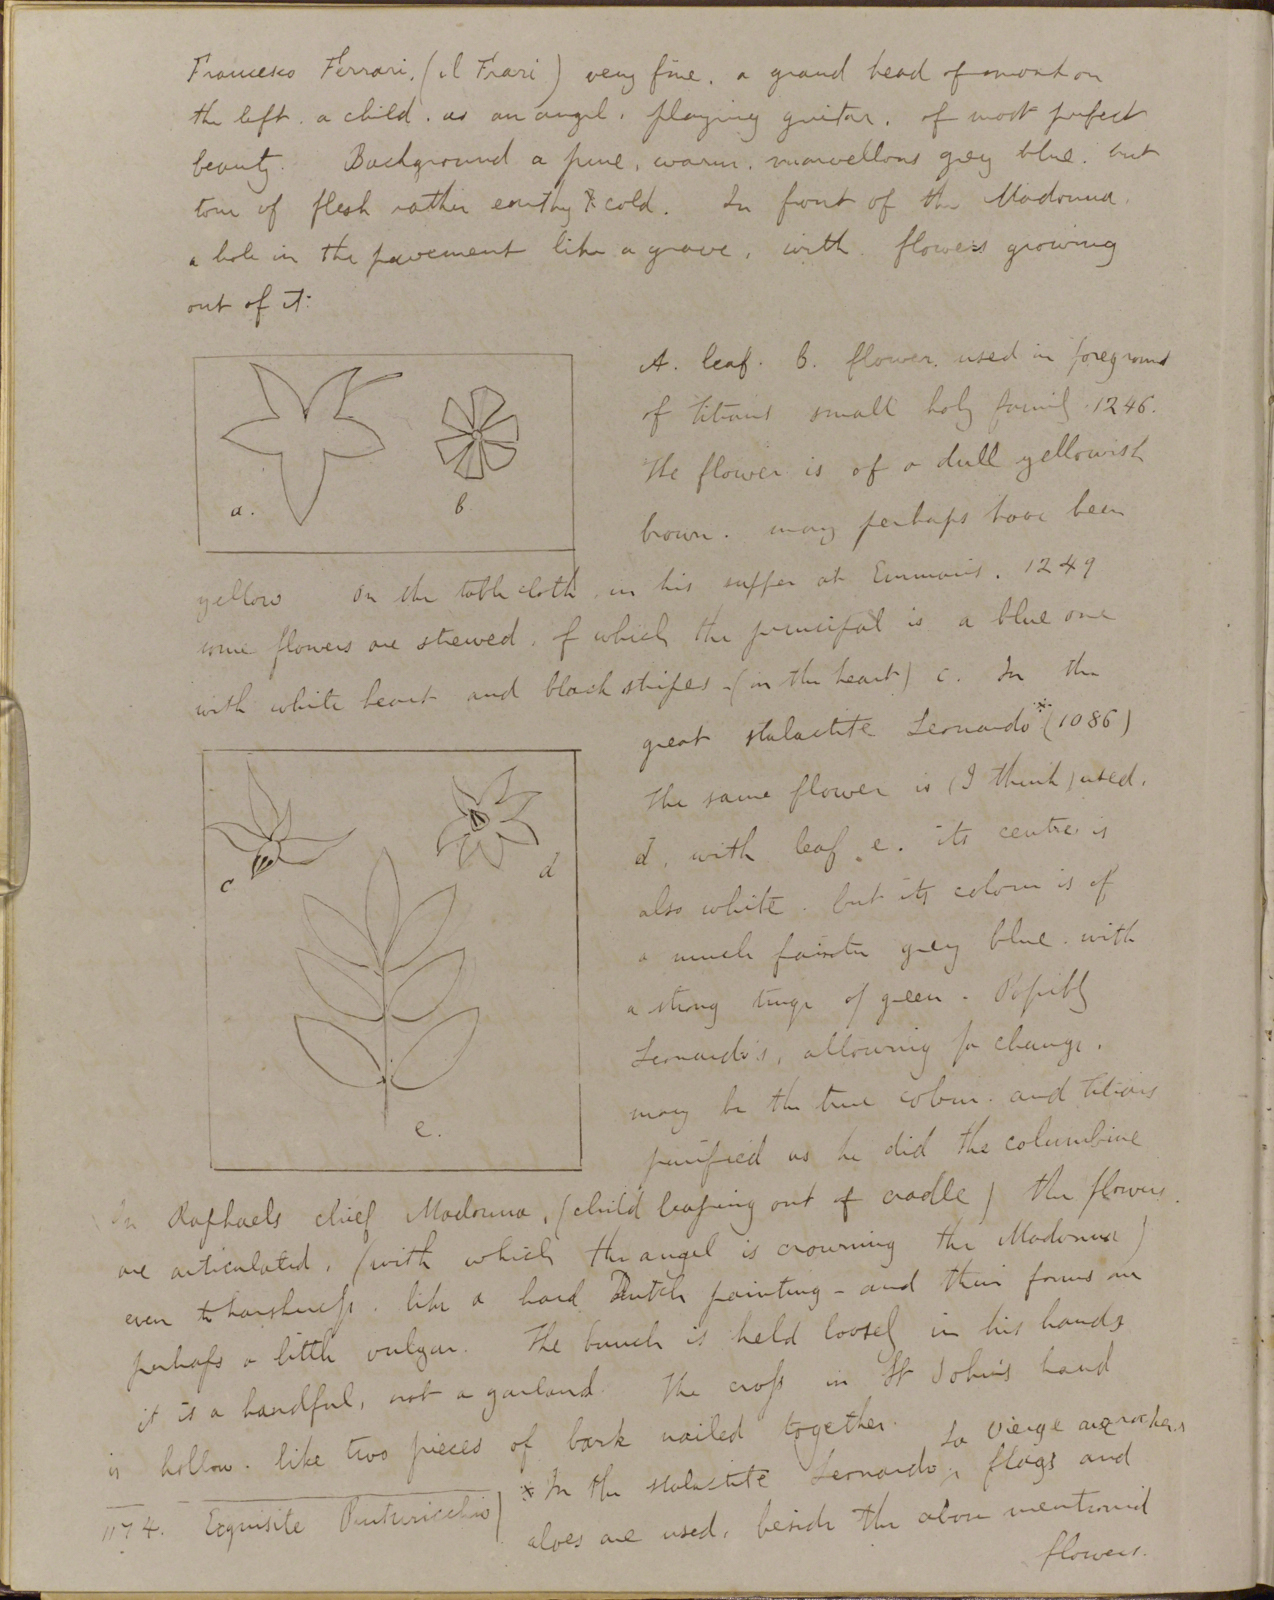 Francesco Ferrari. (il Frari) very fine. a grand head of monk on
the left. a child. as an angel. playing guitar. of most perfect
beauty. Background a pure, warm. marvellous grey blue. but
tone of flesh rather earthy & cold. In front of the Madonna.
a hole in the pavement like a grave, with flowers growing
out of it:
A. leaf. B. flower. used in foreground
of Titians small holy family. 1246.
The flower is of a dull yellowish
brown. may perhaps have been
a.
b
yellow On the table cloth. in his supper at Emmaus. 1249
some flowers are strewed. of which the principal is a blue one
with white heart and black stripes - (in the heart) c. In the
great stalactite Leonardo * (1086)
the same flower is (I think) used.
d. with leaf. e. its centre is
also white. but its colour is of
a much fainter grey blue. with
a strong tinge of green. Possibly
Leonardo's, allowing for change.
may be the true colour. and Titians
purified as he did the columbine
c
d
e.
In Raphaels chief Madonna, (child leaping out of cradle) the flowers.
are articulated, (with which the angel is crowning the Madonna)
even to harshness. like a hard Dutch painting - and their forms are
perhaps a little vulgar. The bunch is held loosely in his hands
it is a handful, not a garland. The cross in St John's hand
is hollow. like two pieces of bark nailed together.
La Vierge aux rochers
* In the stalactite Leonardo, flags and
aloes are used, beside the above mentioned
flowers.
1174. Exquisite Pinturicchio